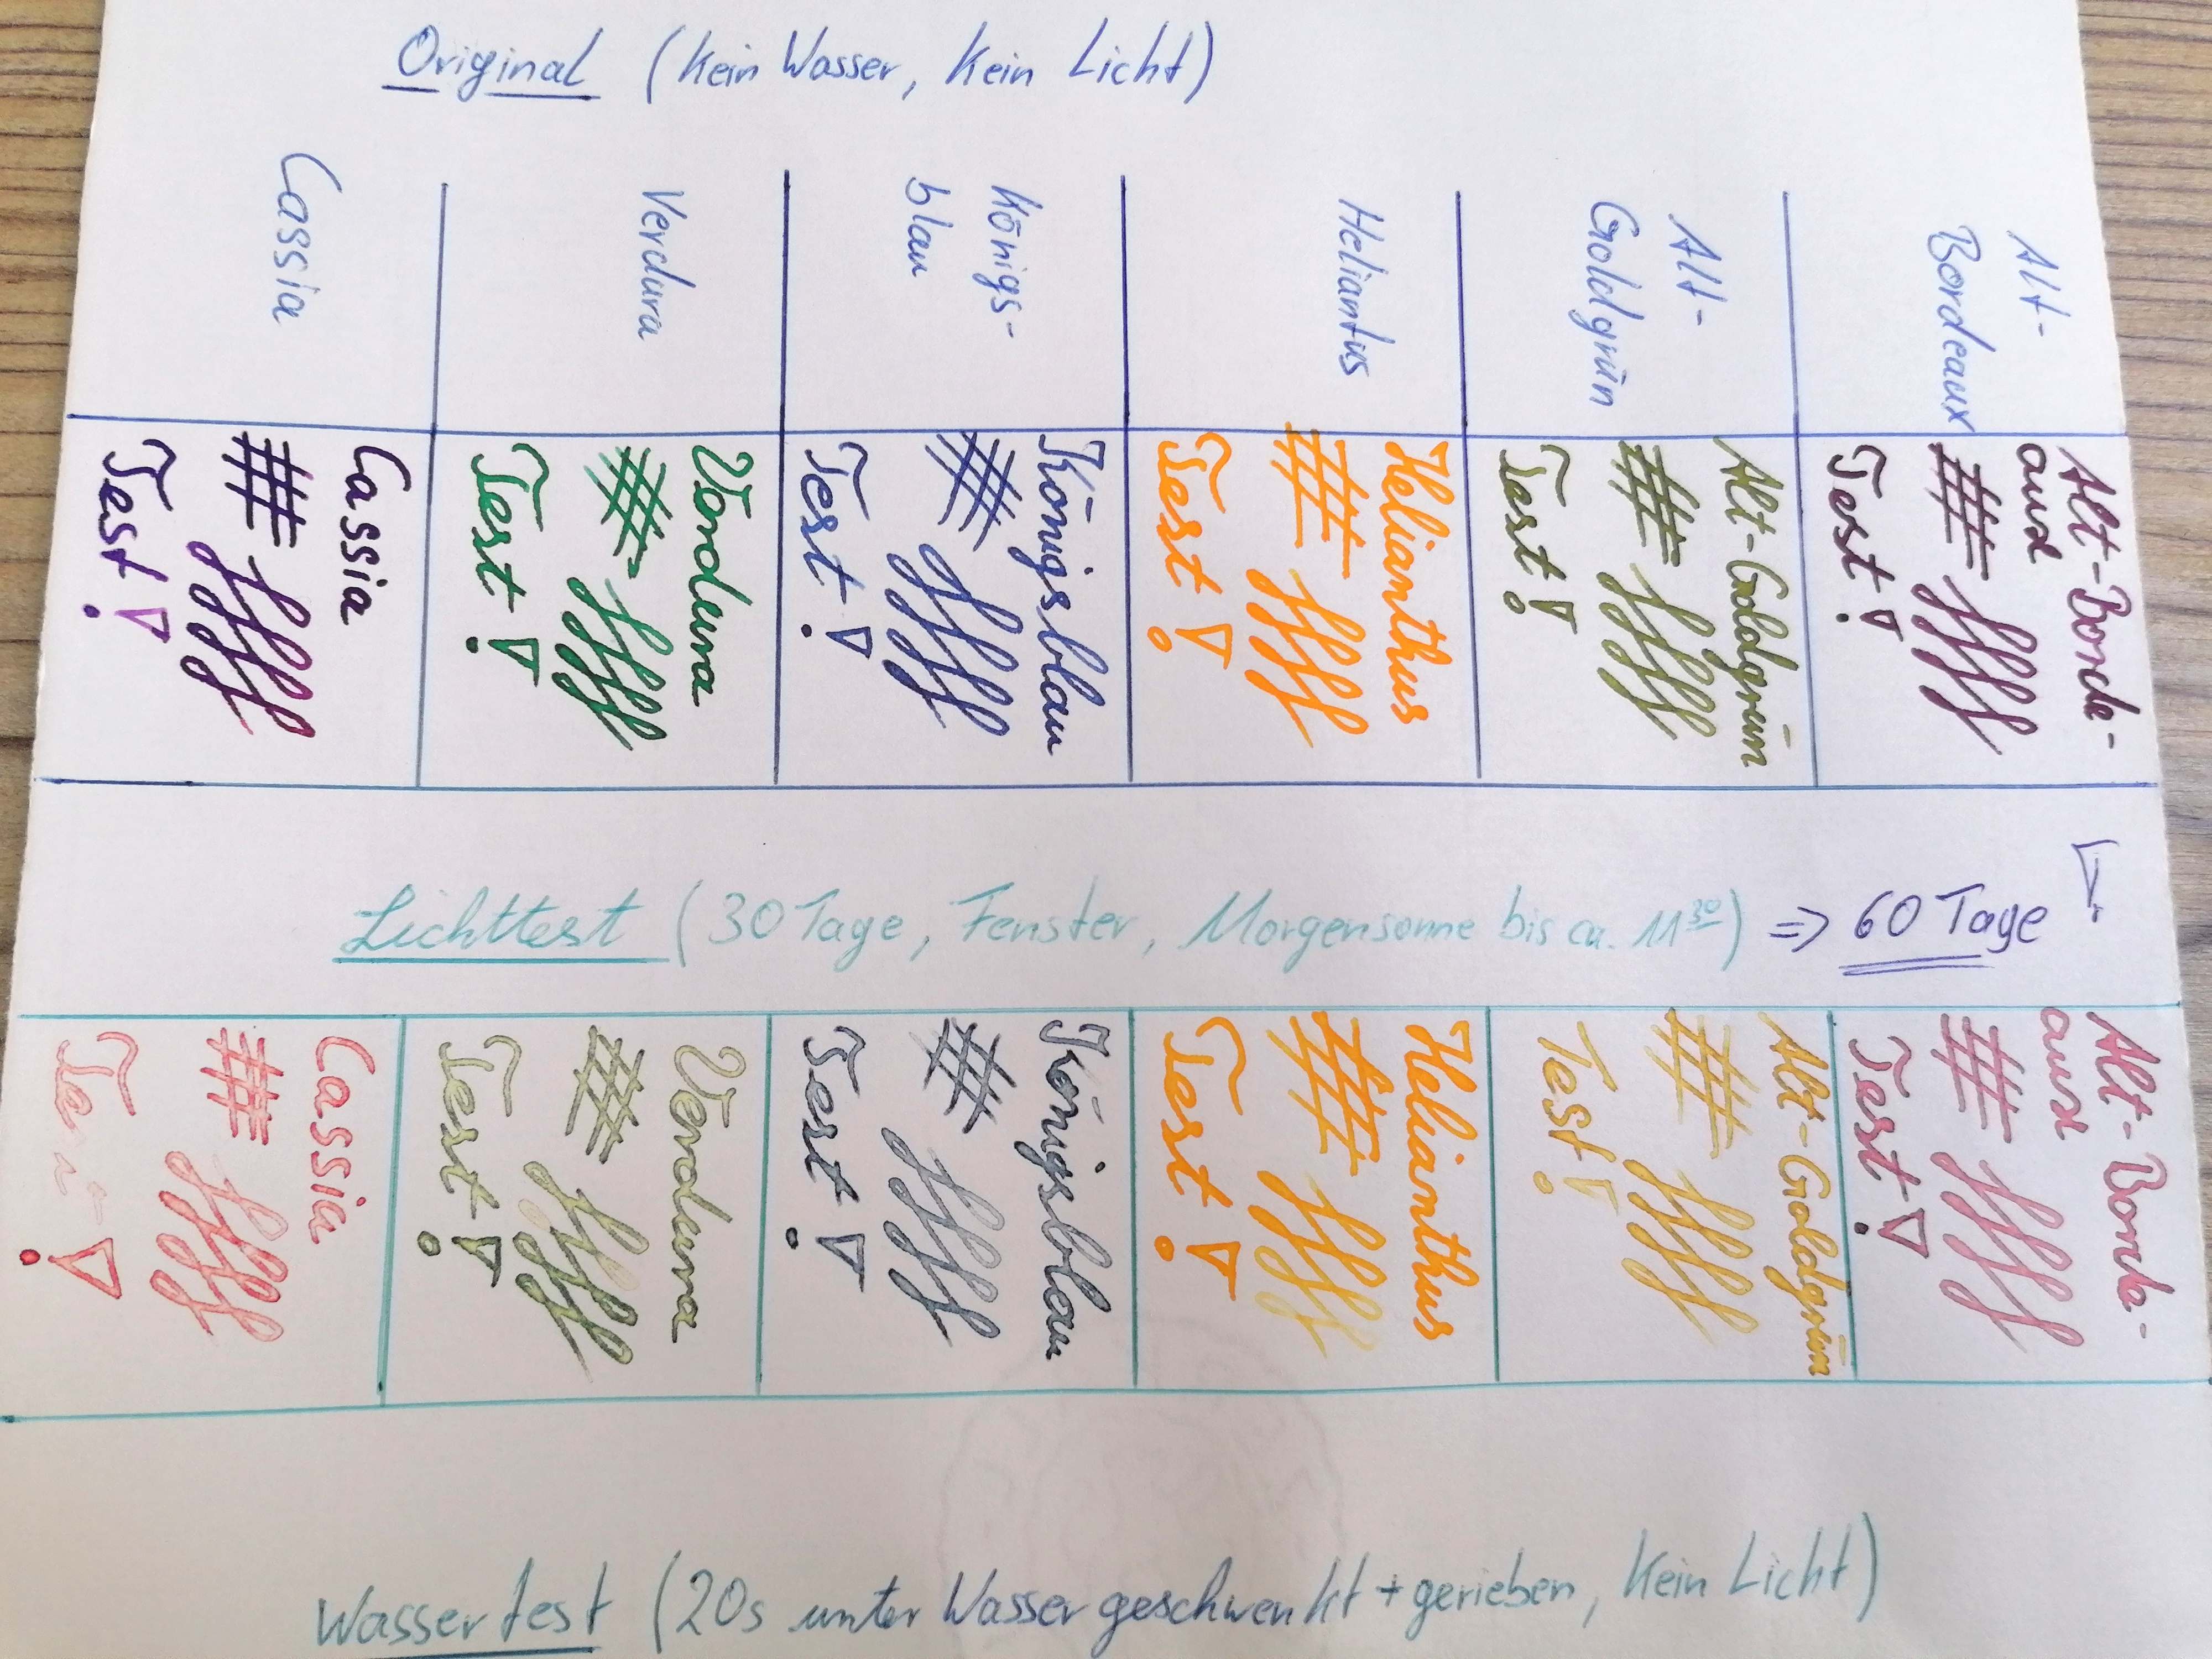 Original (Kein Wasser, Kein Licht)
Cassia
Verdura
Königs-
blau
Heliantus
Alt-
Goldgrün
Alt-
Bordeaux
Cassia
Test!
Verdura
Test!
Königsblau
Test!
Helianthus
Test!
Alt-Goldgrün
Test!
Alt-Borde-
aux
Test!
Lichttest (30 Tage, Fenster, Morgensonne bis ca. 11³⁰) => 60 Tage!
Cassia
Test!
Verdura
Test!
Königsblau
Test!
Helianthus
Test!
Alt-Goldgrün
Test!
Alt-Borde-
aux
Test!
Wassertest (20s unter Wasser geschwenkt + gerieben, Kein Licht)